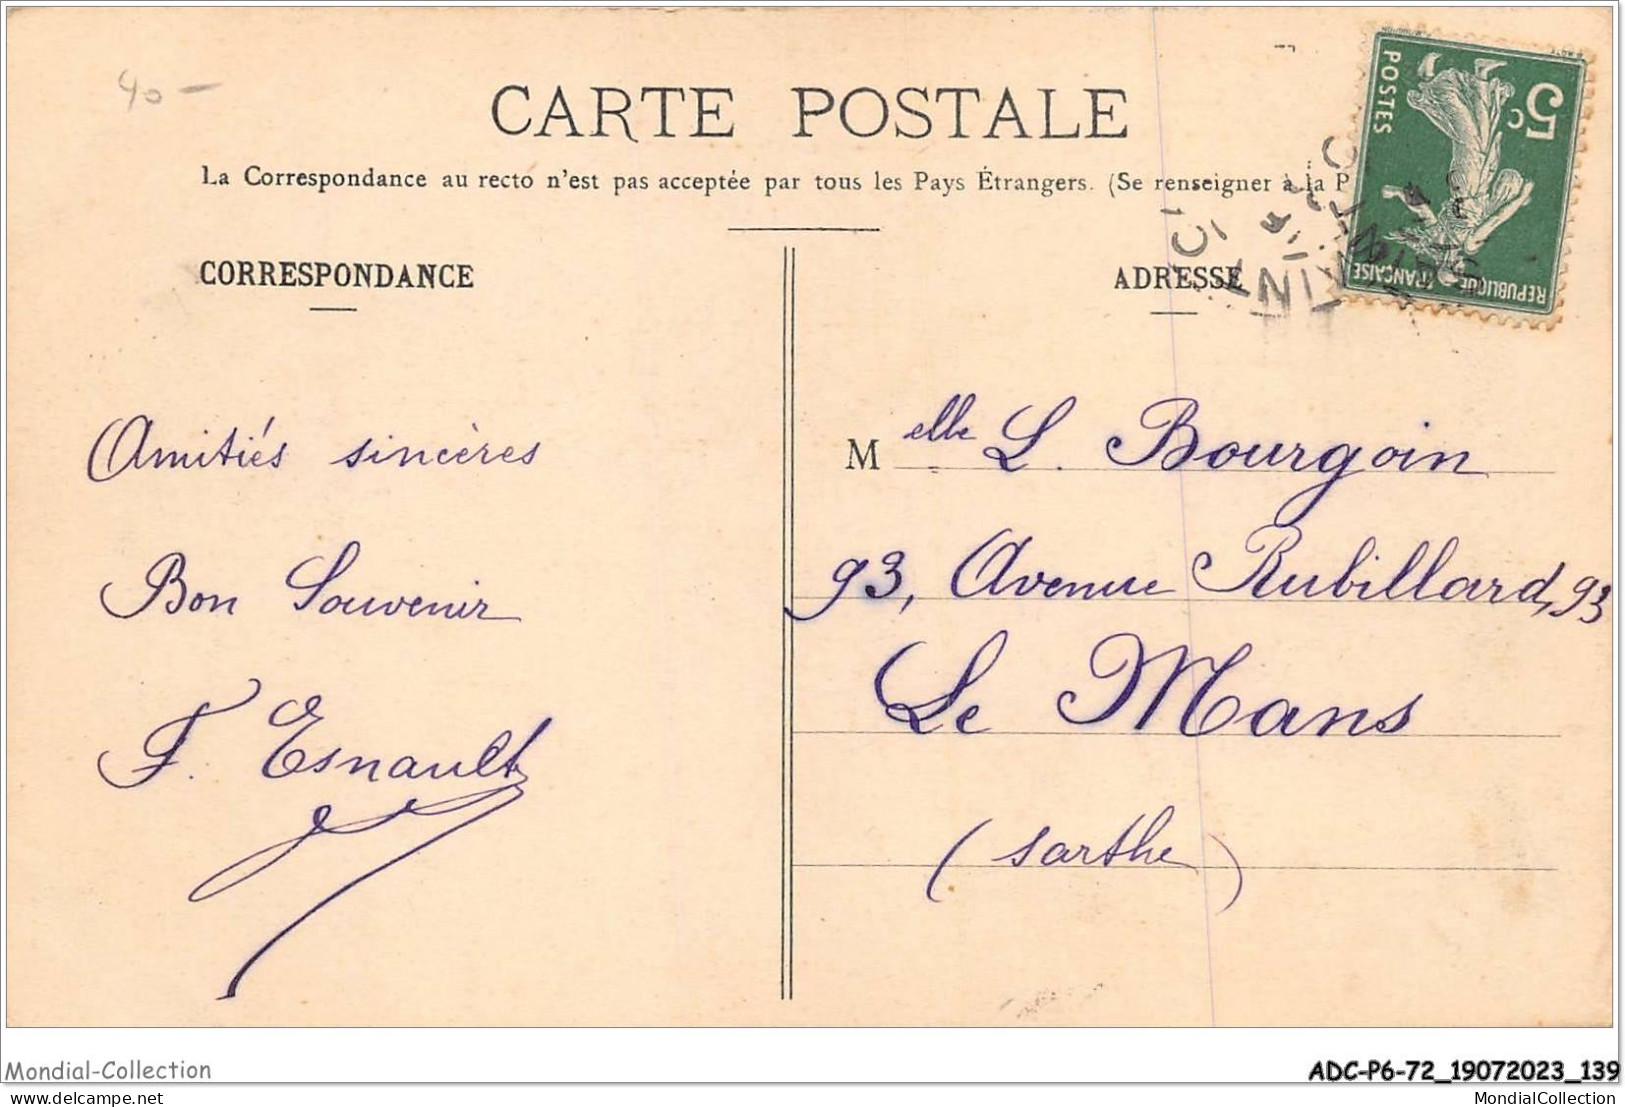 40-
CARTE POSTALE
La Correspondance au recto n'est pas acceptée par tous les Pays Étrangers. (Se renseigner à la P
POSTES
5c
REPUBLIQUE FRANÇAISE
CORRESPONDANCE
ADRESSE
Amitiés sincères
Bon Souvenir
F. Esnault
Melle L. Bourgoin
93, Avenue Rubillard, 93
Le Mans
(Sarthe)
Mondial-Collection
ADC-P6-72_19072023_139
delcampe.net
MondialCollection